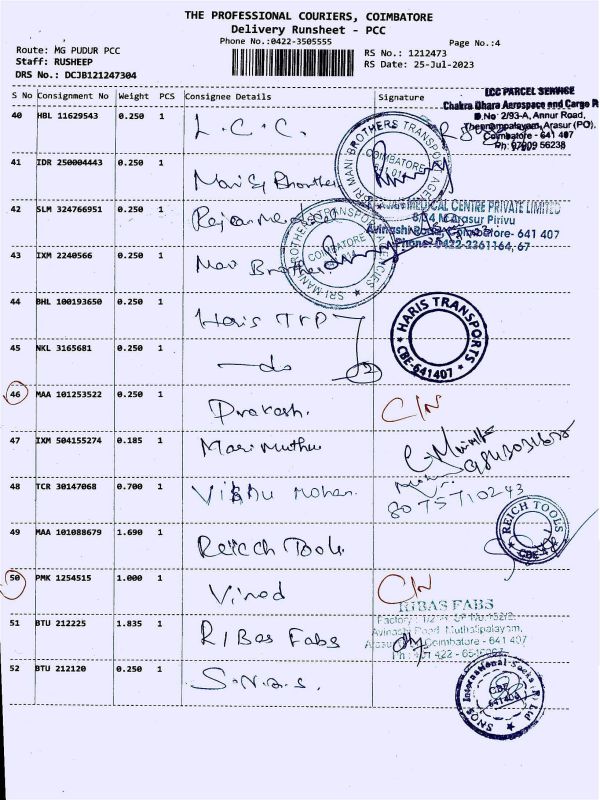 THE PROFESSIONAL COURIERS, COIMBATORE
Delivery Runsheet - PCC
Phone No.:0422-3505555
Page No.:4
Route: MG PUDUR PCC
RS No.: 1212473
Staff: RUSHEEP
RS Date: 25-Jul-2023
DRS No.: DCJB121247304
S No Consignment No Weight PCS Consignee Details Signature
LCC PARCEL SERVICE
Chakra Dhara Aerospace and Cargo P
D.No 2/93-A, Annur Road,
Theerampalayam, Arasur (PO),
Coimbatore - 641 407
Ph: 07909 56238
40 HBL 11629543 0.250 1 L.C.C.
SRI MANI BROTHERS TRANSPORT AGENCIES
COIMBATORE
41 IDR 250004443 0.250 1 Mani Brothers
MEDICAL CENTRE PRIVATE LIMITED
8/14 M Arasur Pirivu
Avinashi Road, Coimbatore- 641 407
Phone: 0422-2361164, 67
42 SLM 324766951 0.250 1
SRI MANI BROTHERS TRANSPORT AGENCIES
COIMBATORE
43 IXM 2240566 0.250 1 Brother
44 BHL 100193650 0.250 1 Haris TRP
HARIS TRANSPORTS
CBE-641407
45 NKL 3165681 0.250 1 do
46 MAA 101253522 0.250 1 Prakash. C/N
47 IXM 504155274 0.185 1 Mari Muthu
48 TCR 30147068 0.700 1 Vishnu Mohan
8075710243
49 MAA 101088679 1.690 1 Reich Tools
REICH TOOLS
50 PMK 1254515 1.000 1 Vinod C/N
RIBAS FABS
Avinashi Road, Muthalipalayam,
Coimbatore - 641 407
51 BTU 212225 1.835 1 RIBas Fabs
52 BTU 212120 0.250 1 S.N.Q.S.
SNQS Internationals Socks (P) Ltd
CBE